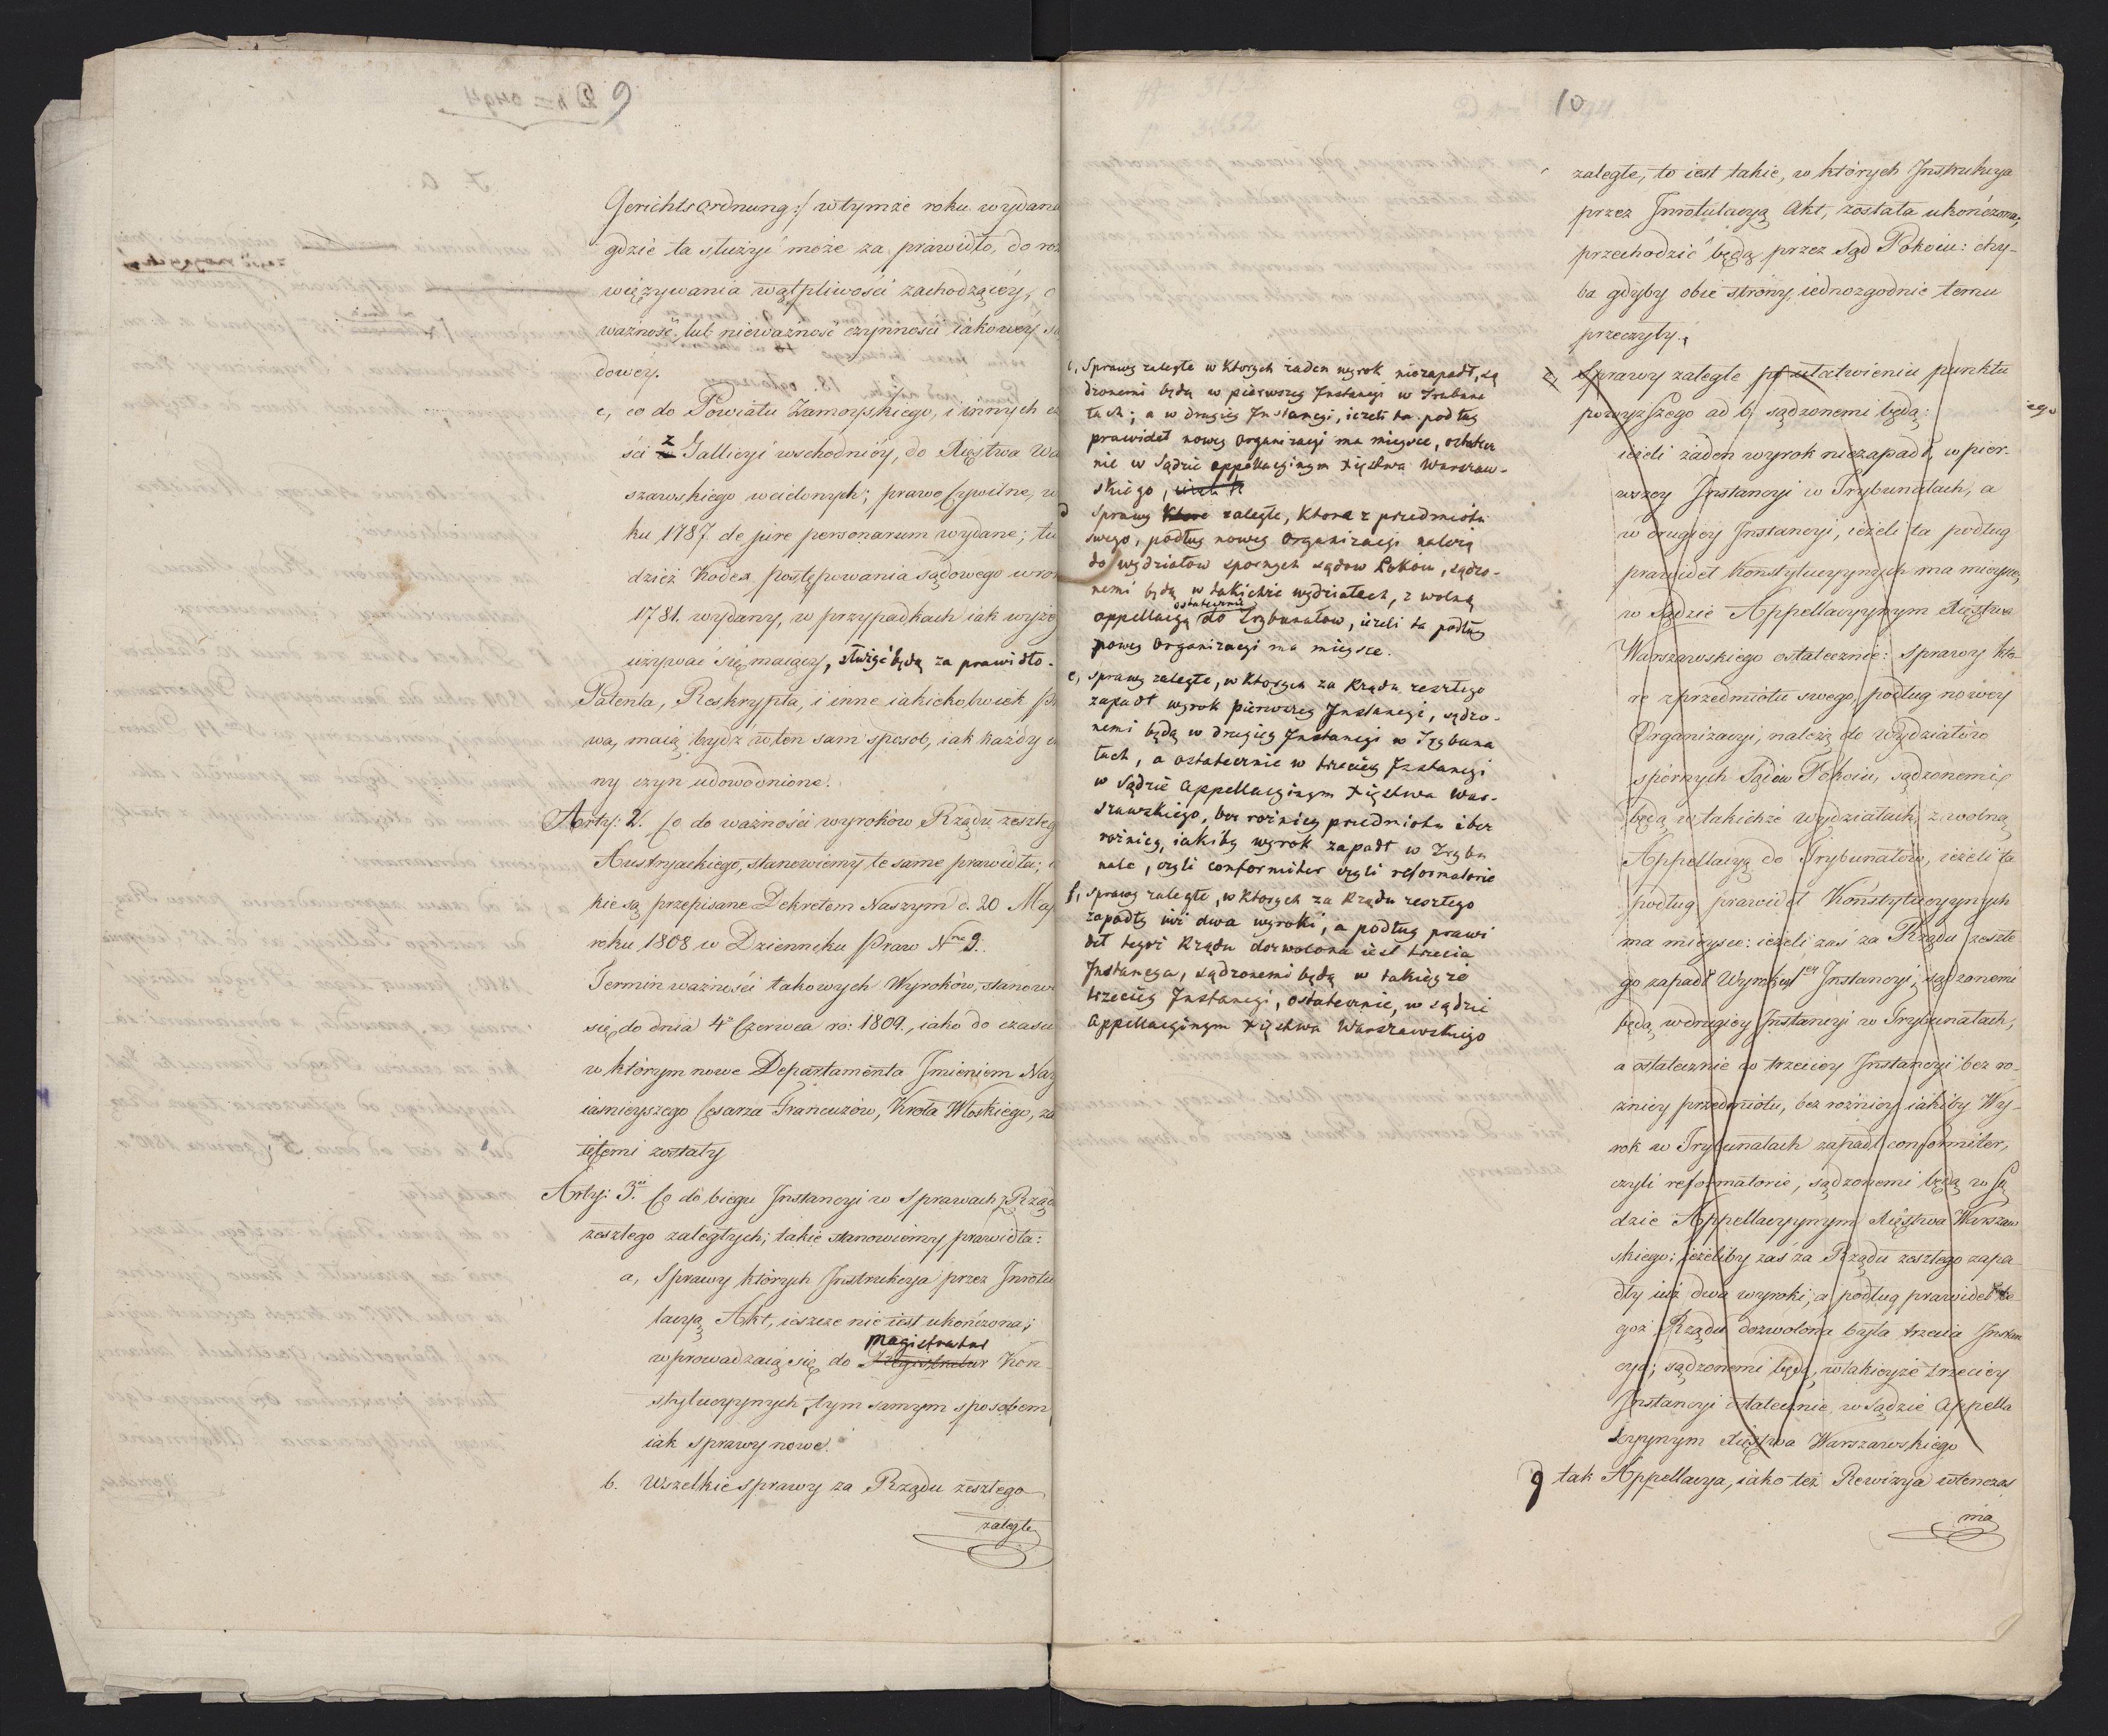 9
Gerichtsordnung:/ wtymże roku wydana
gdzie ta służyć może za prawidło, do roz
więzywania wątpliwości zachodzącéy, o
ważność, lub nieważność czynności iakowéy są
dowéy.
c, co do Powiatu Zamoyskiego, i innych cz
ści z Gallicyi wschodniéy, do Xięstwa Wa
szawskiego wcielonych; prawo Cywilne, w
ku 1787 de jure personarum wydane; tu
dzież Kodex postępowania sądowego w ro
1781. wydany, w przypadkach iak wyżéy
używać się maiący, służyć będą za prawidło.
Patenta, Reskrypta, i inne iakiekolwiek Pr
wa, maią bydź wten sam sposob, iak każdy in
ny czyn udowodnione.
Arty: 2. Co do ważności wyroków Rządu zeszłeg
Austryackiego, stanowiemy te same prawidła; i
kie są przepisane Dekretem Naszym d. 20 Maj
roku 1808 w Dzienniku Praw Nro 9.
Termin ważności takowych Wyroków, stanowi
się do dnia 4o Czerwca ro: 1809., iako do czasu
w którym nowe Departamenta Jmieniem Nay
iaśnieyszego Cesarza Francuzów, Króla Włoskiego, za
iętemi zostały
Arty: 3ci Co do biegu Jnstancyi w Sprawach z Rządu
zeszłego zaległych; takie stanowiemy prawidła:
a, Sprawy których Jnstrukcya przez Jnrotu
lacyą Akt, ieszcze nie iest ukończona;
magistratur
wprowadzaią się do Magistratur Kon-
stytucyynych, tym samym sposobem
iak sprawy nowe.
b. Wszelkie sprawy za Rządu zeszłego
zaległe
10
c, Sprawy zaległe w Ktorych żaden wyrok niezapadł, są
dzonemi będą w pierwszey Instancyi w Trybuna
łach; a w drugiey Instancyi, ieżeli ta podług
prawideł nowey organizacyi ma mieysce, ostatecz
nie w Sądzie appellacyinym Xięstwa Warszaw-
skiego,
d Sprawy Ktore zaległe, Ktore z przedmiotu
swego, podług nowey organizacyi należą
do wydziałow spornych sądow Pokoiu, sądzo-
nemi będą w takichże wydziałach, z wolną
ostatecznie
appellacyą do Trybunałow, ieżeli ta podług
nowey organizacyi ma mieysce.
e, sprawy zaległe, w Ktorych za Rządu zeszłego
zapadł wyrok pierwszey Instancyi, sądzo-
nemi będą w drugiey Instancyi w Trybuna
łach, a ostatecznie w trzeciey Instancyi
w Sądzie Appellacyinym Xięstwa War-
szawskiego, bez rożnicy przedmiotu i bez
rożnicy, iakiby wyrok zapadł w Trybu
nale, czyli conformiter czyli reformatorie
f, sprawy zaległe, w Ktorych za Rządu zeszłego
zapadły iuż dwa wyroki, a podług prawi
deł tegoż Rządu dozwolona iest trzecia
Instancya, sądzonemi będą w takieyże
trzeciey Instancyi, ostatecznie, w sądzie
Appellacyinym Xięstwa Warszawskiego
zaległe, to iest takie, w których Jnstrukcya
przez Jnrotulacyą Akt, została ukończona;
przechodzić będą przez Sąd Pokoiu: chy-
ba gdyby obie strony, iednozgodnie temu
przeczyły.
c, Sprawy zaległe po ułatwieniu punktu
powyższego ad b, sądzonemi będą:
ieżeli żaden wyrok niezapadł, w pier-
wszey Jnstancyi w Trybunałach, a
w drugiey Jnstancyi, ieżeli ta podług
prawideł Konstytucyynych ma mieysce,
w Sądzie Appellacyynym Xięstwa
Warszawskiego ostatecznie: sprawy któ-
re zprzedmiotu swego, podług nowey
Organizacyi, należą do wydziałów
spornych Sądów Pokoiu, sądzonemi
będą w takichże wydziałach, z wolną
Appellacyą do Trybunałów, ieżeli ta
podług prawideł Konstytucyynych
ma mieysce: ieżeli zaś za Rządu zeszłe
go zapadł Wyrok 1ey Jnstancyi, sądzonemi
będą wdrugiey Jnstancyi w Trybunałach,
a ostatecznie w trzeciey Jnstancyi bez ro-
żnicy przedmiotu, bez rożnicy iakiby Wy-
rok w Trybunałach zapadł conformiter,
czyli reformatorie, sądzonemi będą w Są
dzie Appellacyynym Xięstwa Warszaw
skiego: ieżeliby zaś za Rządu zeszłego zapa
dły iuż dwa wyroki, a podług prawideł te
goż Rządu dozwolona była trzecia Jnstan
cya; sądzonemi będą, wtakieyże trzeciey
Jnstancyi ostatecznie, w Sądzie Appella
cyynym Xięstwa Warszawskiego
g tak Appellacya, iako też Rewizya wtenczas
ma